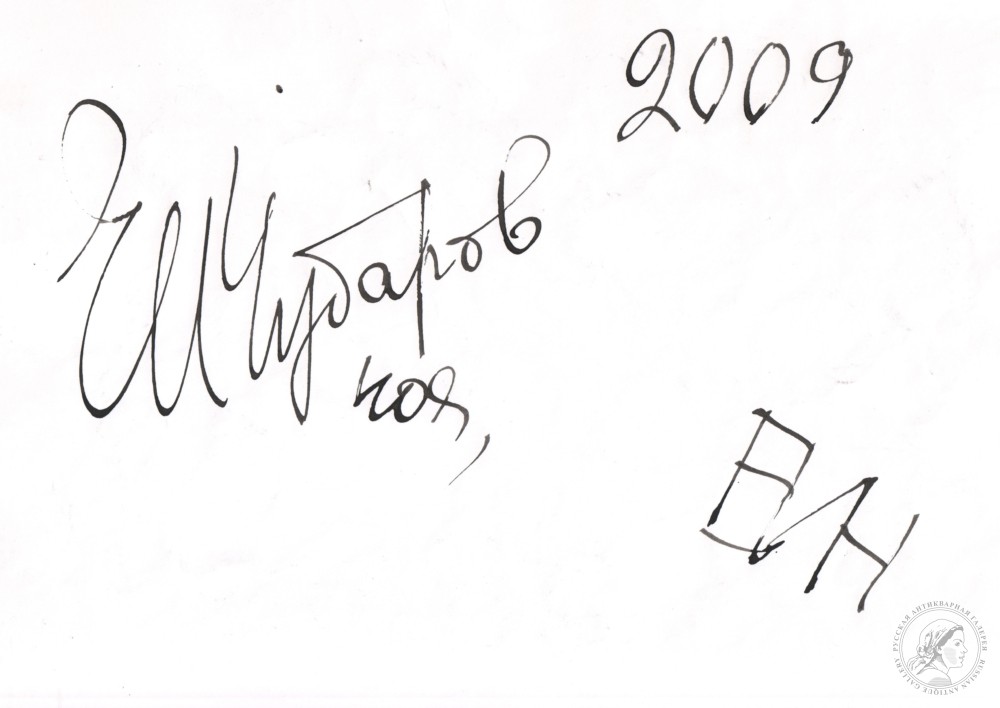 2009
Е Чубаров
ноя,
РУССКАЯ АНТИКВАРНАЯ ГАЛЕРЕЯ RUSSIAN ANTIQUE GALLERY